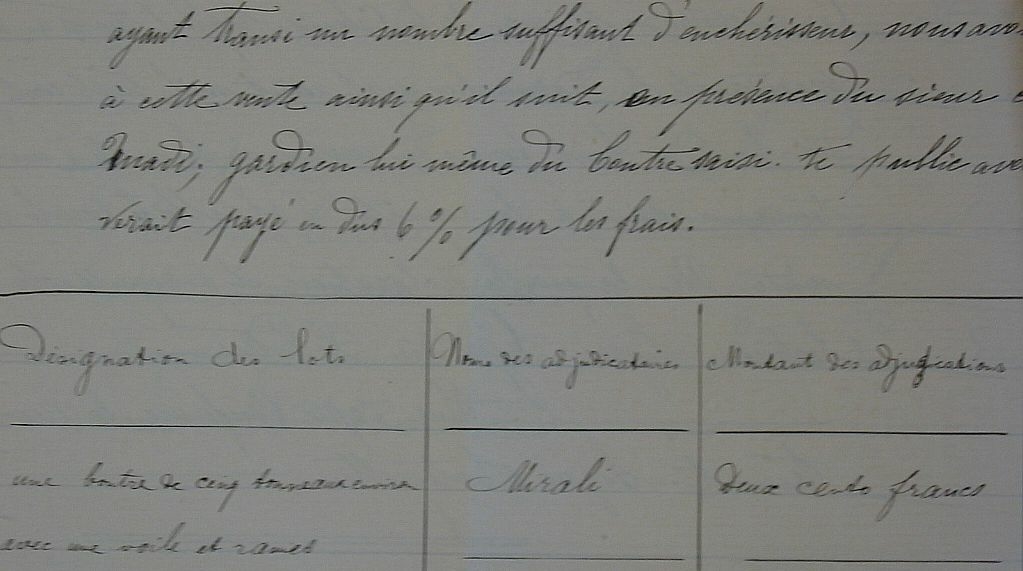 ayant transi un nombre suffisant d'enchérisseur, nous avo
à cette vente ainsi qu'il suit, en présence du sieur
Madi; gardien lui même du boutre saisi. te public ave
verait payé en dus 6% pour les frais.
Désignation des lots
Noms des adjudicataires
Montant des adjudications
une boutre de cinq tonneaux environ
Mirali
Deux cents francs
avec une voile et rames